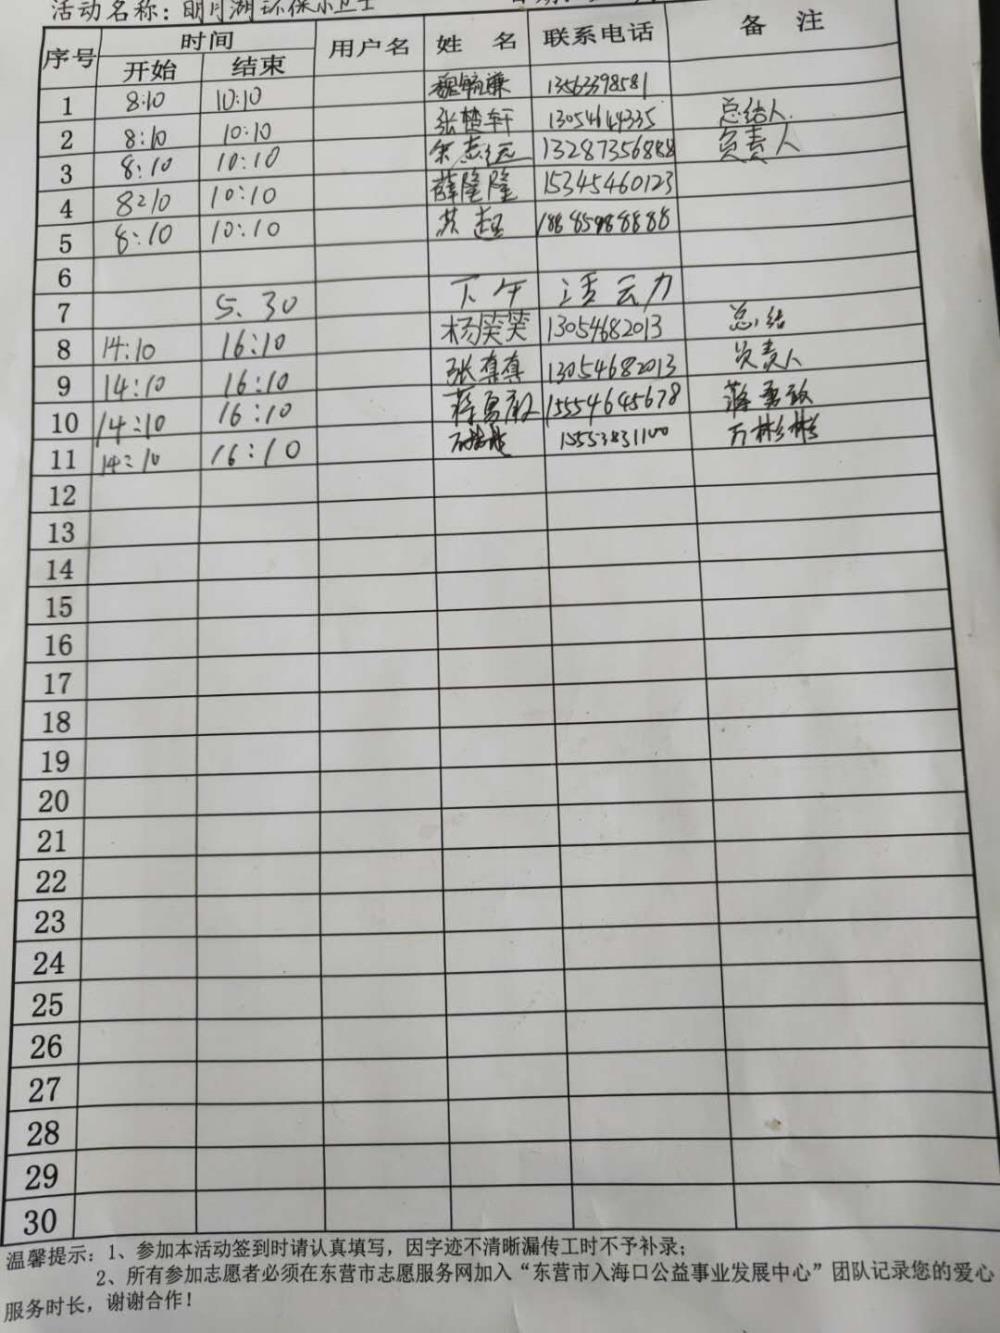 活动名称：明月湖环保小卫士
序号 时间 用户名 姓 名 联系电话 备 注
开始 结束
1 8:10 10:10 13563398581
2 8:10 10:10 张楚轩 13054644335 总结人
3 8:10 10:10 余志远 13287356888 负责人
4 8:10 10:10 薛隆隆 15345460123
5 8:10 10:10 18885988888
6
7 5.30 下午
8 14:10 16:10 杨笑笑 13054682013 总结
9 14:10 16:10 13054682013 负责人
10 14:10 16:10 15554645678
11 14:10 16:10 15553831100 万彬彬
12
13
14
15
16
17
18
19
20
21
22
23
24
25
26
27
28
29
30
温馨提示：1、参加本活动签到时请认真填写，因字迹不清晰漏传工时不予补录；
2、所有参加志愿者必须在东营市志愿服务网加入“东营市入海口公益事业发展中心”团队记录您的爱心
服务时长，谢谢合作！